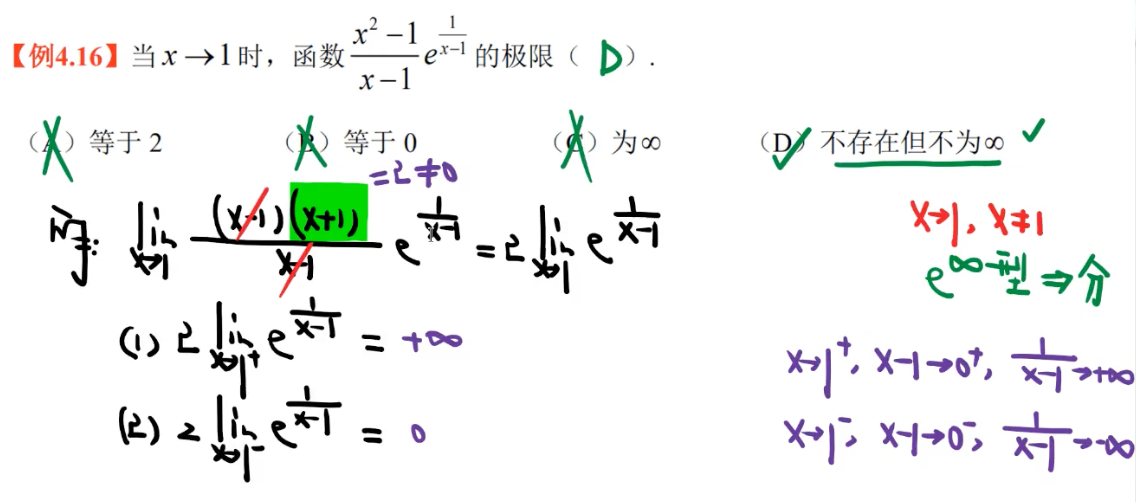 【例4.16】当 x→1 时，函数 \frac{x^2-1}{x-1}e^{\frac{1}{x-1}} 的极限（ D ）.
（A）等于 2 （B）等于 0 （C）为∞ （D）不存在但不为∞ ✓
=2≠0
解: \lim_{x→1} \frac{(x-1)(x+1)}{x-1} e^{\frac{1}{x-1}} = 2 \lim_{x→1} e^{\frac{1}{x-1}}
x→1, x≠1
e^∞ 型 ⇒ 分
(1) 2 \lim_{x→1^+} e^{\frac{1}{x-1}} = +∞
x→1^+, x-1→0^+, \frac{1}{x-1}→+∞
(2) 2 \lim_{x→1^-} e^{\frac{1}{x-1}} = 0
x→1^-, x-1→0^-, \frac{1}{x-1}→-∞